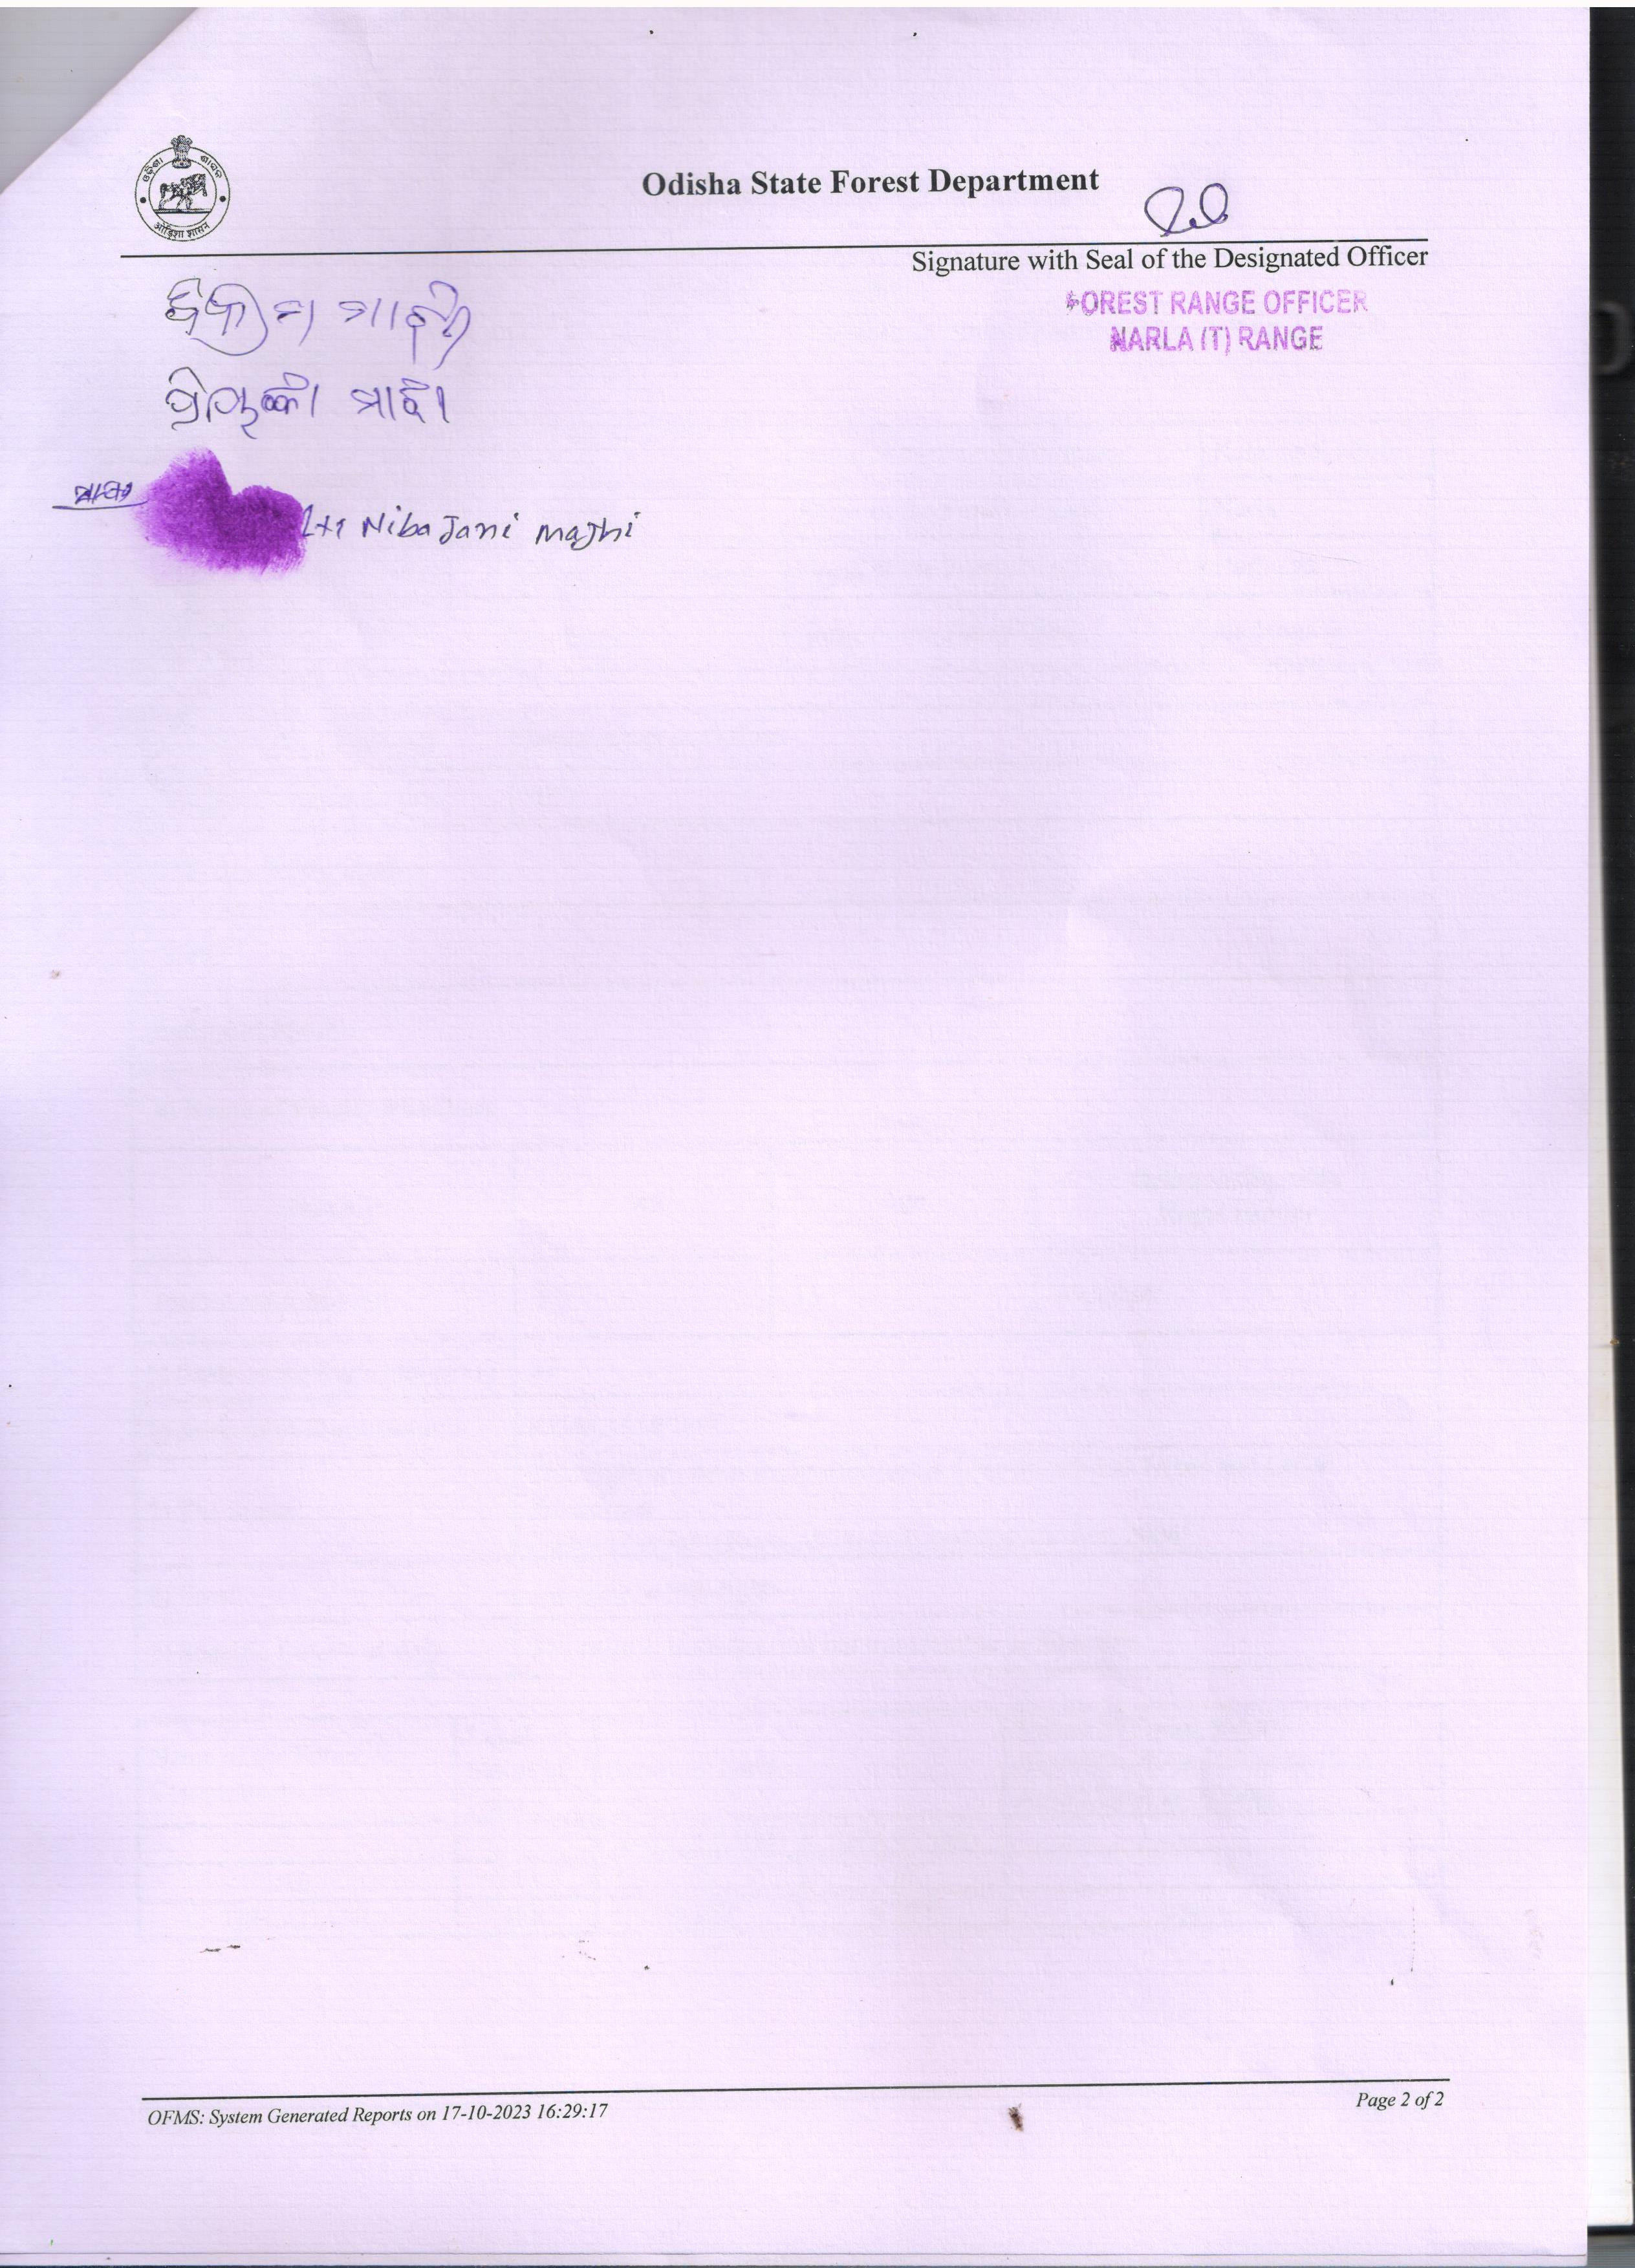 ଓଡ଼ିଶା ଶାସନ
ओड़िशा शासन
Odisha State Forest Department
Signature with Seal of the Designated Officer
FOREST RANGE OFFICER
NARLA (T) RANGE
ବିକ୍ରମ ମାଝୀ
ପ୍ରିୟଙ୍କା ମାଝି
LTI Nibajani Majhi
OFMS: System Generated Reports on 17-10-2023 16:29:17
Page 2 of 2